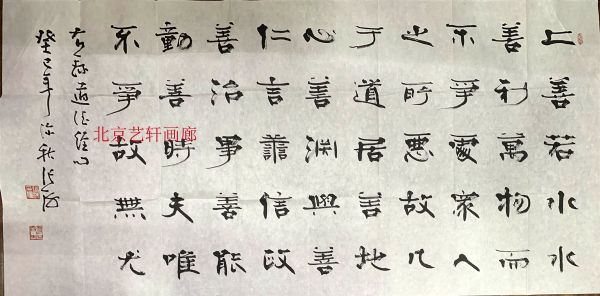 上善若水水
善利萬物而
不爭處眾人
之所惡故几
于道居善地
心善渊與善
仁言譱信政
善治事善能
動善時夫唯
不爭故無尤
右錄道德經句
癸巳年深秋
北京艺轩画廊